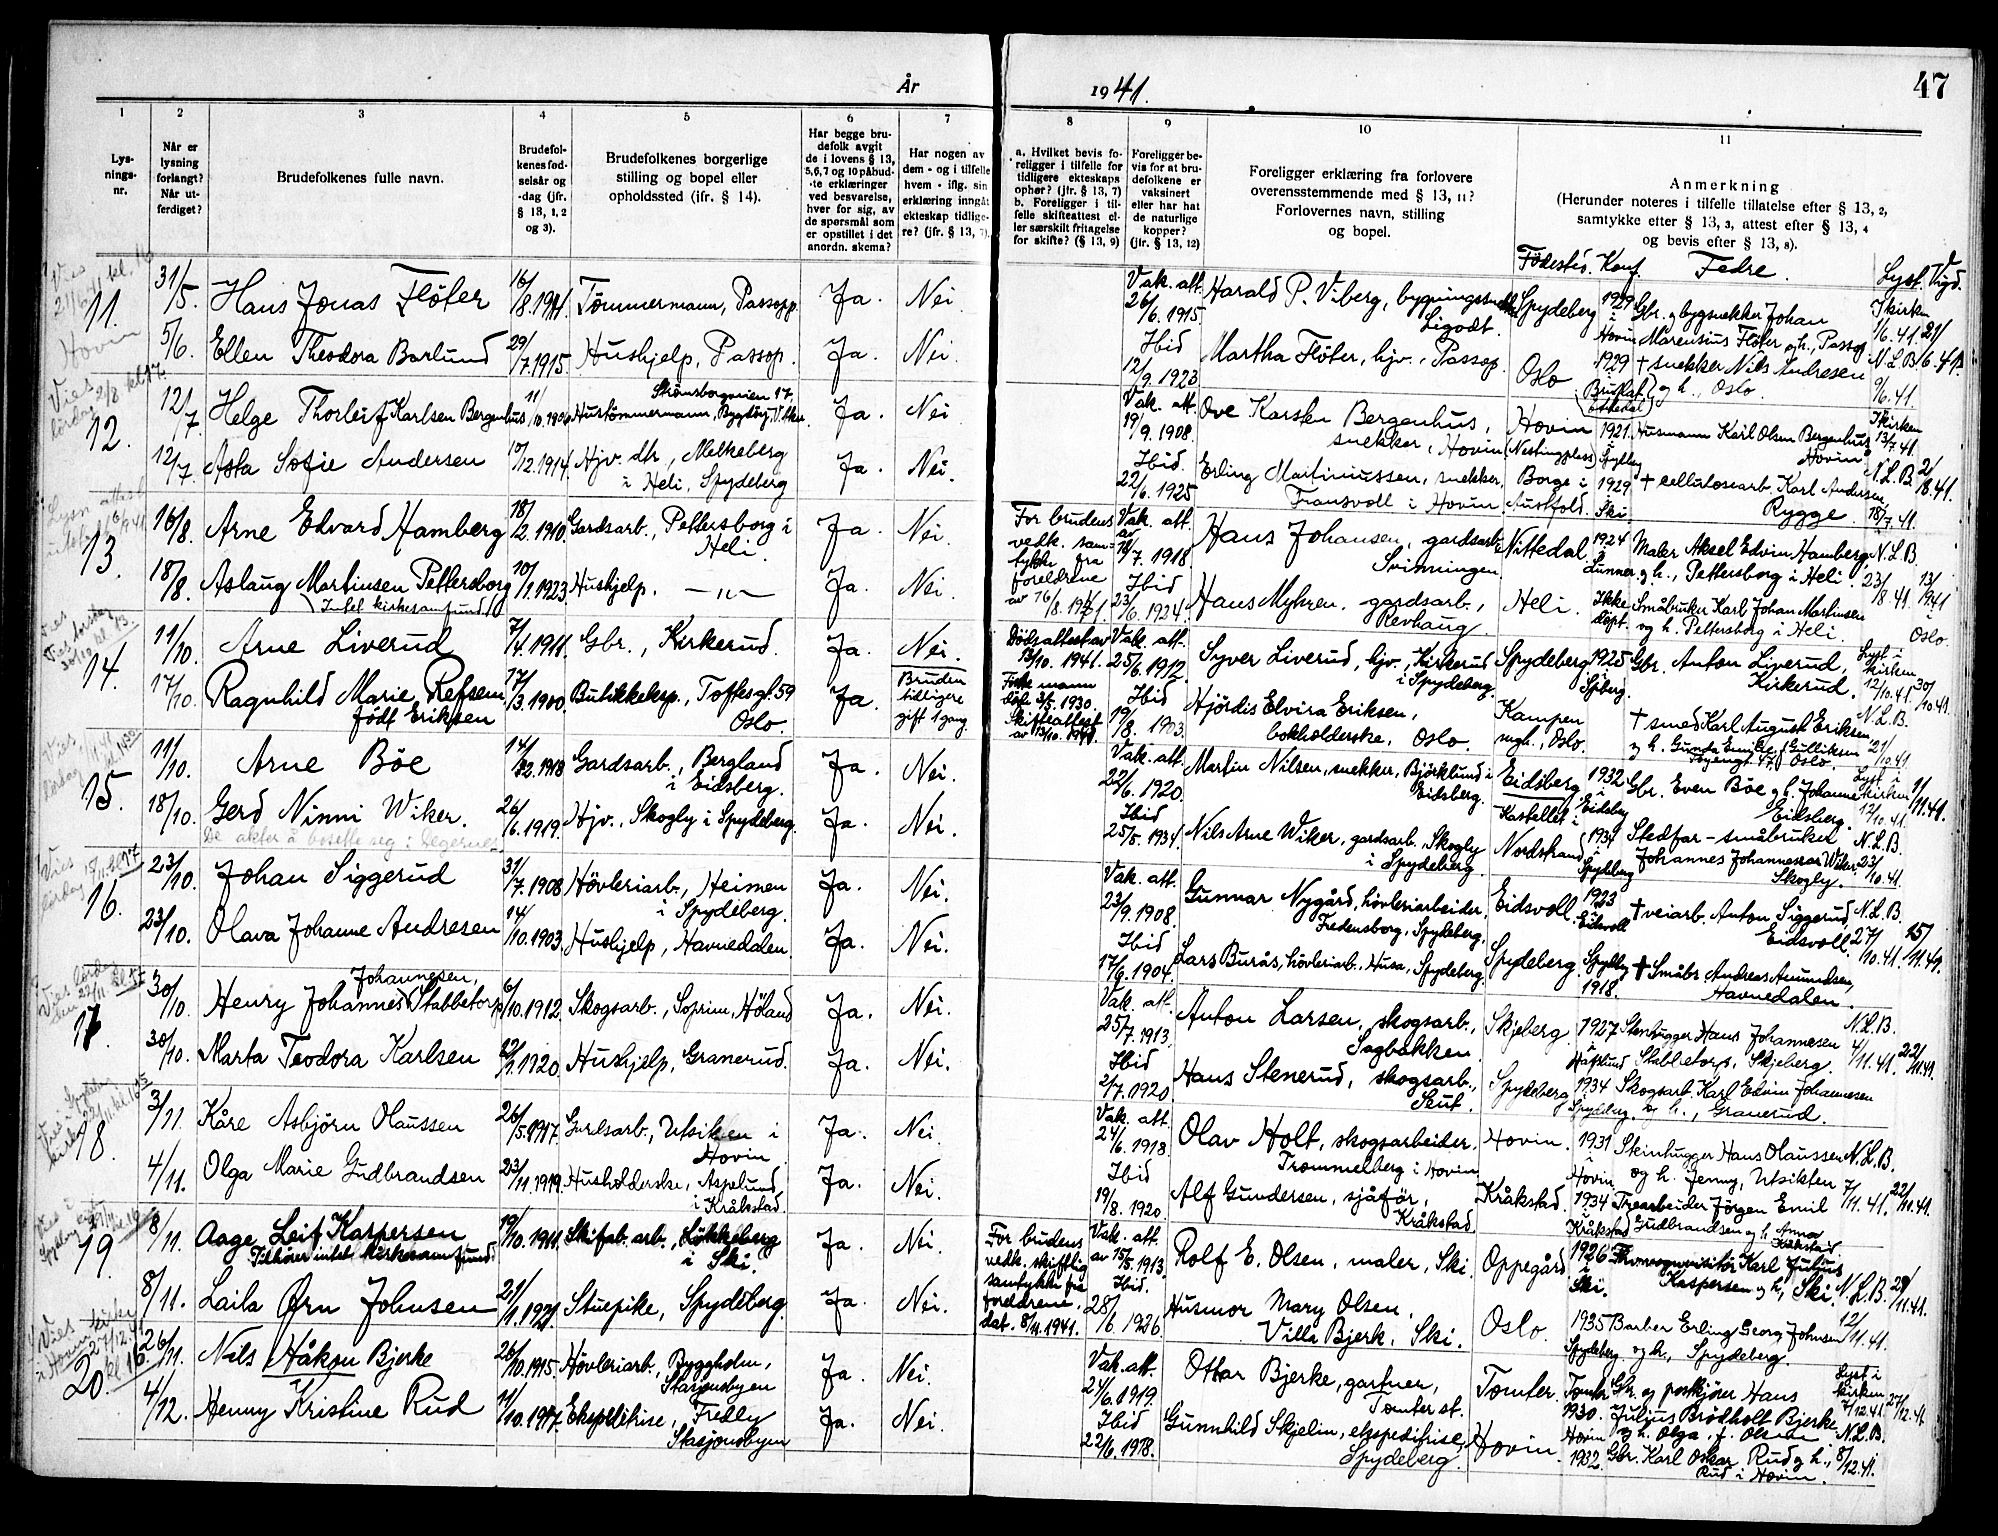 År
1941.
47
1
2
3
4
5
6
7
8
9
10
11
Lys-
nings-
nr.
Når er
lysning
forlangt?
Når ut-
ferdiget?
Brudefolkenes fulle navn.
Brudefol-
kenes fød-
selsår og
-dag (jfr.
§ 13, 1, 2
og 3).
Brudefolkenes borgerlige
stilling og bopel eller
opholdssted (ifr. § 14).
Har begge bru-
defolk avgit
de i lovens § 13,
5, 6, 7 og 10 påbud-
te erklæringer
ved besvarelse,
hver for sig, av
de spørsmål som
er opstillet i det
anordn. skema?
Har nogen av
dem - og i tilfelle
hvem - iflg. sin
erklæring inngåt
ekteskap tidlige-
re? (jfr. § 13, 7).
a. Hvilket bevis fo-
religger i tilfelle for
tidligere ekteskaps
ophør? (jfr. § 13, 7)
b. Foreligger i til-
felle skifteattest el-
ler særskilt fritagelse
for skifte? (§ 13, 9)
Foreligger be-
vis for at bru-
defolkene er
vaksinert
eller har hat
de naturlige
kopper?
(jfr. § 13, 12)
Foreligger erklæring fra forlovere
overensstemmende med § 13, 11?
Forlovernes navn, stilling
og bopel.
Anmerkning
(Herunder noteres i tilfelle tillatelse efter § 13, 2,
samtykke efter § 13, 3, attest efter § 13, 4
og bevis efter § 13, 8).
Fødested. Konf. Fedre. Lyst. Vigd.
11.
31/5. Hans Jonas Fløter 16/8.1911 Tømmermann, Passopp. Ja. Nei. Vak. att. 26/6. 1915 Harald P. Viberg, bygningssnekker Ligodt. Spydeberg 1929 i Hovin Gbr. og bygsnekker Johan Marensius Fløter og h., Passop I kirken 1/6.41. 21/6.41.
5/6. Ellen Theodora Barlund 29/7.1915. Hushjelp, Passop. Ja. Nei. Ibid 12/9. 1923 Martha Fløter, hjv., Passop. Oslo 1929 † snekker Nils Andresen og h., Oslo. N.L.B. 9/6.41.
12.
12/7. Helge Thorleif Karlsen Bergenhus 11/10.1906 Hustømmermann, Bygdøy, V. Aker. Skønsborgveien 17. Ja. Nei. Vak. att. 19/9. 1908. Ove Karsten Bergenhus, snekker, Hovin. Hovin 1921. Husmann Karl Olsen Bergenhus, Hovin I kirken 13/7.41.
12/7. Asta Sofie Andersen 10/12.1914. Hjv. dtr., Melkeberg i Heli, Spydeberg Ja. Nei. Ibid. 22/6. 1925 Erling Martiniussen, snekker, Fransvoll i Hovin. Borge i Austfold. 1929 i Ski. † cellulosearb. Karl Andersen, Rygge. N.L.B. 18/7.41. 2/8.41.
13.
16/8. Arne Edvard Hamberg 18/2.1910. Gardsarb., Pettersborg i Heli. Ja. Nei. For brudens vedk. samtykke fra foreldrene av 16/8.1941 Vak. att. av 14/7. 1918 Hans Johansen, gardsarb., Svinningen. Nittedal 1924 i Lunner Maler Aksel Edvin Hamberg, og h., Pettersborg i Heli. N.L.B. 23/8.41. 13/9.41 i Oslo.
18/8. Aslaug Martinsen Pettersborg 10/1.1923. Hushjelp. — " — Ja. Nei. Ibid 23/6. 1924. Hans Myhren, gardsarb., Revhaug. Heli. Ikke døpt. Småbruker Karl Johan Martinsen og h. Pettersborg i Heli.
(Intet kirkesamfund)
14.
11/10. Arne Liverud 7/4.1911. Gbr., Kirkerud. Ja. Nei. Dødsattest av 13/10. 1941. Vak. att. 25/6. 1912. Syver Liverud, hjv., Kirkerud i Spydeberg. Spydeberg 1925 i Spberg. Gbr. Anton Liverud, Kirkerud. Lyst i kirken 12/10.41. 30/10.41.
17/10. Ragnhild Marie Refsem født Eriksen 17/3.1900. Butikkeksp., Toftesgt. 59 Oslo. Ja. Bruden tidligere gift 1 gang Første mann død 3/5. 1930. Skifteattest av 13/10. 1941. Ibid 19/8. 1903. Hjørdis Elvira Eriksen, bokholderske, Oslo. Kampen mgh., Oslo. † smed Karl August Eriksen og h. Gunda Emilie f. Gulliksen Oslo. N.L.B. 21/10.41.
15.
11/10. Arne Bøe 14/12.1918 Gardsarb., Bergland i Eidsberg. Ja. Nei. Vak. att. 22/6. 1920. Martin Nilsen, snekker, Bjørklund i Eidsberg. Eidsberg 1932 i Eidsberg Gbr. Even Bøe og h. Johanne Eidsberg. Lyst i kirken 12/10.41. 1/11.41.
18/10. Gerd Ninni Wiker. 26/6.1919. Hjv., Skogly i Spydeberg. Ja. Nei. Ibid 25/5. 1934. Nils Arne Wiker, gardsarb., Skogly i Spydeberg. Kastellet i Nordstrand 1934 i Spydeberg Stedfar - småbruker Johannes Johannessen Wiker. Skogly. N.L.B. 23/10.41.
De akter å bosette seg i Degernes.
16.
23/10. Johan Siggerud 31/7.1908 Høvleriarb., Heimen i Spydeberg. Ja. Nei. Vak. att. 23/9. 1908. Gunnar Nygård, høvleriarbeider, Fredensborg, Spydeberg. Eidsvoll 1923 i Eidsvoll † veiarb. Anton Siggerud, Eidsvoll. N.L.B. 27/10.41. 15/11.41.
23/10. Olava Johanne Andresen 14/10.1903. Hushjelp, Havnedalen. Ja. Nei. Ibid 17/6. 1904. Lars Burås, høvleriarb., Husa, Spydeberg. Spydeberg. Spydbg 1918. † Småbr. Andreas Amundsen, Havnedalen.
17.
30/10. Henry Johannes Johannesen, Stabbetorp 6/10.1912. Skogsarb., Soprim, Høland Ja. Nei. Vak. att. 25/7. 1913. Anton Larsen, skogsarb., Sagbakken. Skjeberg. 1927 Stenhugger Hans Johannesen Stabbetorp, Skjeberg. N.L.B. 4/11.41. 22/11.41.
30/10. Marta Teodora Karlsen 1920. Hushjelp, Granerud. Ja. Nei. Ibid 2/7. 1920 Hans Stenerud, skogsarb., Skut. Spydeberg 1934 Spydeberg. Skogsarb. Karl Edvin Johannesen og h., Granerud.
18.
3/11. Kåre Asbjørn Olaussen 26/5.1917. Gardsarb., Utsikten i Hovin Ja. Nei. Vak. att. 24/6. 1918 Olav Holt, skogsarbeider, Trommelberg i Hovin Hovin. 1931 i Hovin Steinhugger Hans Olaussen og h. Jenny, Utsikten N.L.B. 7/11.41. 22/11.41.
4/11. Olga Marie Gudbrandsen 23/11.1919. Husholderske, Aspelund i Kråkstad. Ja. Nei. Ibid 19/8. 1920. Alf Gundersen, sjåfør, Kråkstad. Kråkstad. 1934 i Kråkstad Trearbeider Jørgen Emil Gudbrandsen og h. Anna Kråkstad.
19.
8/11. Aage Leif Karpersen 19/10.1911. Skifab. arb., Løkkeberg i Ski. Ja. Nei. For brudens vedk. skriftlig samtykke fra foreldrene, dat. 8/11.1941. Vak. att. av 15/5. 1913. Rolf E. Olsen, maler, Ski. Oppegård 1926 i Ski. Karl Julius Kaspersen og h., Ski. N.L.B. 12/11.41. 29/11.41.
Tilhører intet kirkesamfund
8/11. Laila Ørn Johnsen 21/1.1921. Stuepike, Spydeberg. Ja. Nei. Ibid. 28/6. 1926. Husmor Mary Olsen, Villa Bjerk, Ski. Oslo. 1935 Spydeberg. Barber Erling Georg Johnsen og h., Spydeberg.
20.
26/11. Nils Håkon Bjerke 26/10.1915. Høvleriarb., Byggholm, Stasjonsbyen Ja. Nei. Vak. att. 24/6. 1919. Ottar Bjerke, gartner, Tomter st. Tomter. Tomter 1930. Gbr. og postkjører Hans Julius Brødholt Bjerke og h. Olga, f. Olsen Lyst i kirken 7/12.41. 27/12.41.
4/12. Henny Kristine Rud 11/10.1917. Ekspeditrise, Fredly Stasjonsbyen Ja. Nei. Ibid 22/6. 1918. Gunnhild Skjelin, ekspeditrise, Spydeberg. Hovin. Hovin 1932. Gbr. Karl Oskar Rud og h., Rud i Hovin. N.L.B. 8/12.41.